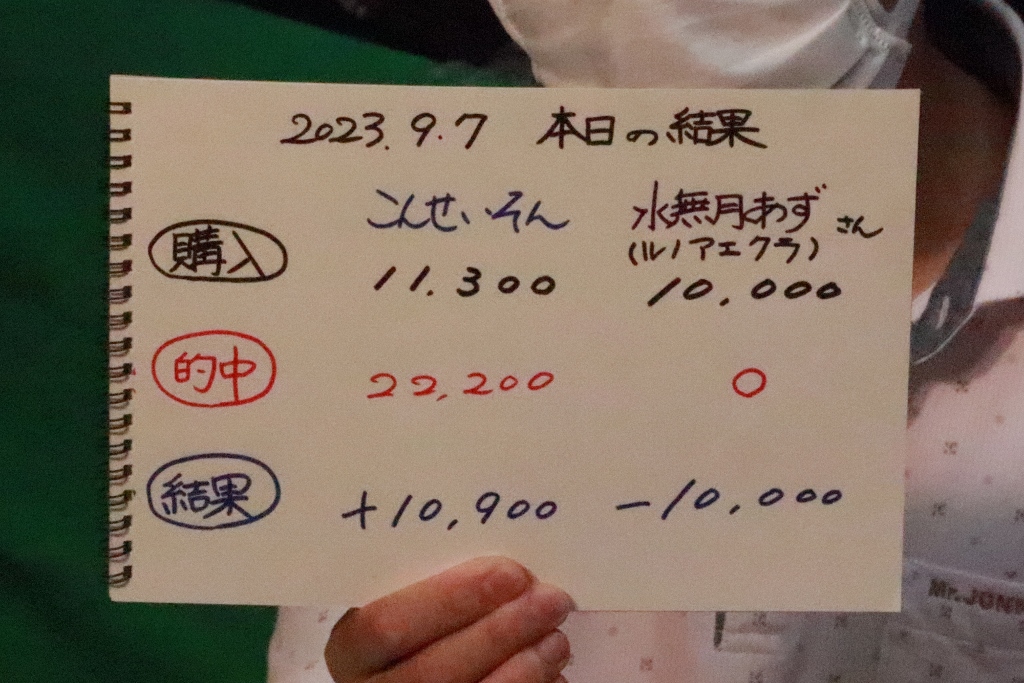 2023.9.7 本日の結果
こんせいそん 水無月あずさん
(ルノアエクラ)
購入 11.300 10,000
的中 22,200 0
結果 +10,900 -10,000